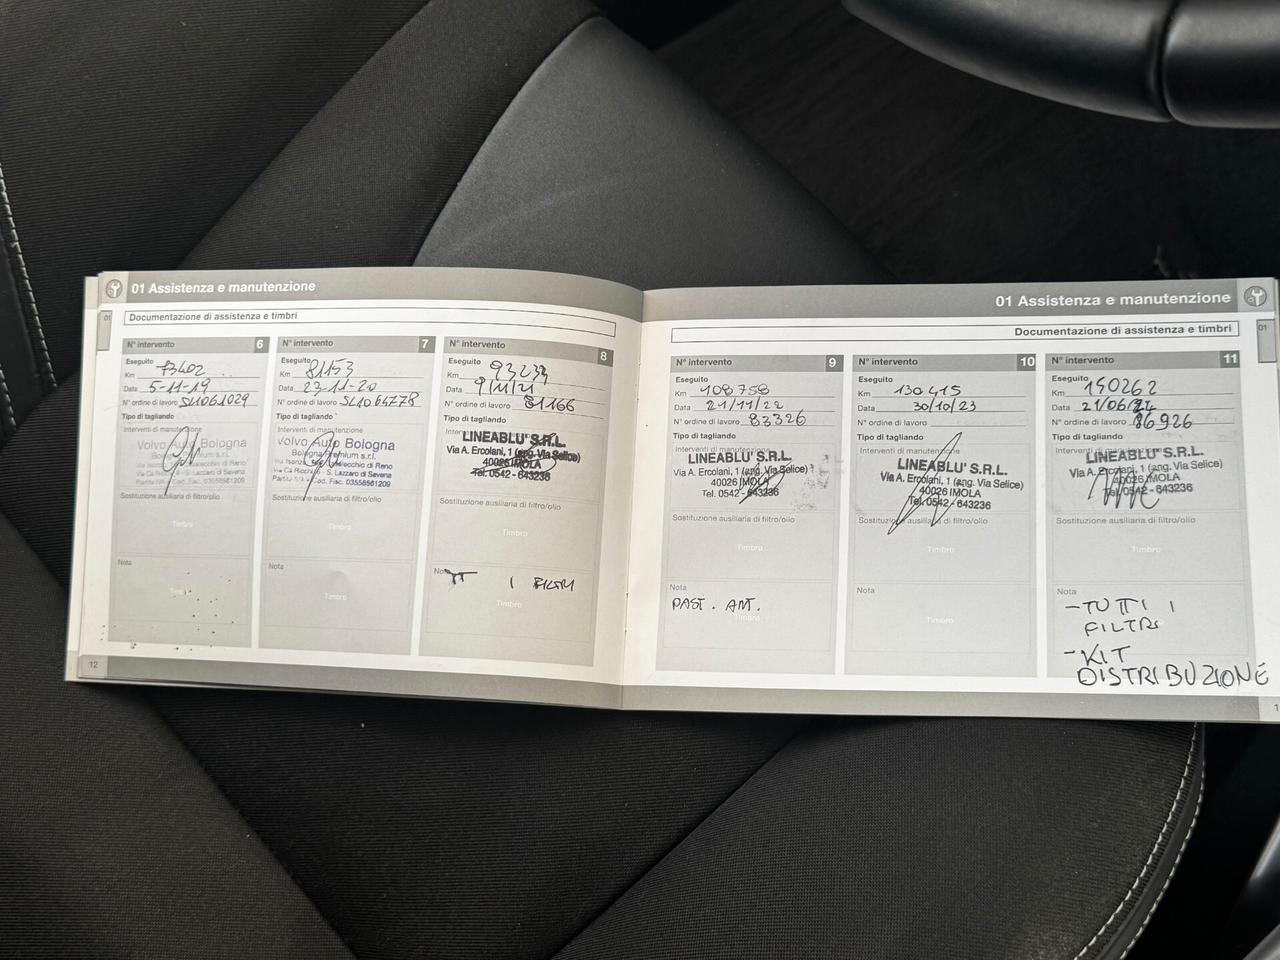 01 Assistenza e manutenzione
Documentazione di assistenza e timbri
N° intervento 6
Eseguito
Km 73402
Data 5-11-19
N° ordine di lavoro SL1061029
Tipo di tagliando
Interventi di manutenzione
Volvo Auto Bologna
Bologna Premium s.r.l.
Sostituzione ausiliaria di filtro/olio
Timbro
Nota
N° intervento 7
Eseguito
Km 81153
Data 23-11-20
N° ordine di lavoro SL1064778
Tipo di tagliando
Interventi di manutenzione
Volvo Auto Bologna
Bologna Premium s.r.l.
Sostituzione ausiliaria di filtro/olio
Timbro
Nota
Timbro
N° intervento 8
Eseguito
Km 93233
Data 9/11/21
N° ordine di lavoro 81166
Tipo di tagliando
LINEABLU' S.R.L.
Via A. Ercolani, 1 (ang. Via Selice)
40026 IMOLA
Tel. 0542 - 643236
Sostituzione ausiliaria di filtro/olio
Timbro
Nota
TT I FILTRI
Timbro
12
01 Assistenza e manutenzione
01
Documentazione di assistenza e timbri
N° intervento 9
Eseguito
Km 108758
Data 21/11/22
N° ordine di lavoro 83326
Tipo di tagliando
Interventi di manutenzione
LINEABLU' S.R.L.
Via A. Ercolani, 1 (ang. Via Selice)
40026 IMOLA
Tel. 0542 - 643236
Sostituzione ausiliaria di filtro/olio
Timbro
Nota
PAST. ANT.
Timbro
N° intervento 10
Eseguito
Km 130415
Data 30/10/23
N° ordine di lavoro
Tipo di tagliando
Interventi di manutenzione
LINEABLU' S.R.L.
Via A. Ercolani, 1 (ang. Via Selice)
40026 IMOLA
Tel. 0542 - 643236
Sostituzione ausiliaria di filtro/olio
Timbro
Nota
Timbro
N° intervento 11
Eseguito
Km 150262
Data 21/06/24
N° ordine di lavoro 86926
Tipo di tagliando
LINEABLU' S.R.L.
Via A. Ercolani, 1 (ang. Via Selice)
40026 IMOLA
Tel. 0542 - 643236
Sostituzione ausiliaria di filtro/olio
Timbro
Nota
- TUTTI I
FILTRI
- KIT
DISTRIBUZIONE